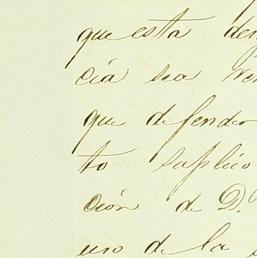 que esta den
cia sea re
que defender
to suplico
ción de D.
uno de la